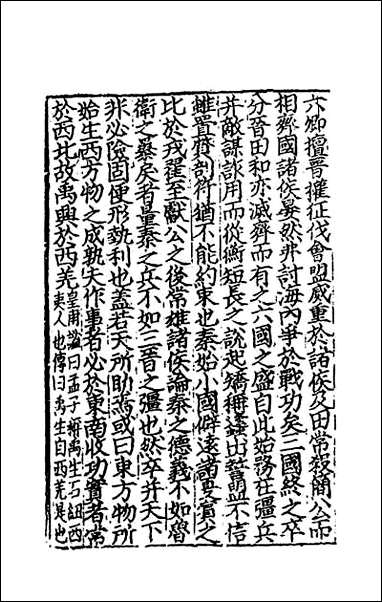 六卿擅晉權征伐會盟威重於諸侯及田常殺簡公而
相齊國諸侯晏然弗討海內爭於戰功矣三國終之卒
分晉田和亦滅齊而有之六國之盛自此始務在彊兵
并敵謀詐用而從衡短長之說起矯稱蠭出誓盟不信
雖置質剖符猶不能約束也秦始小國僻遠諸夏賓之
比於戎翟至獻公之後常雄諸侯論秦之德義不如魯
衛之暴戾者量秦之兵不如三晉之彊也然卒并天下
非必險固便形執利也蓋若天所助焉或曰東方物所
始生西方物之成孰夫作事者必於東南收功實者常
於西北故禹興於西羌
皇甫謐曰孟子稱禹生石紐西
夷人也傳曰禹生自西羌是也